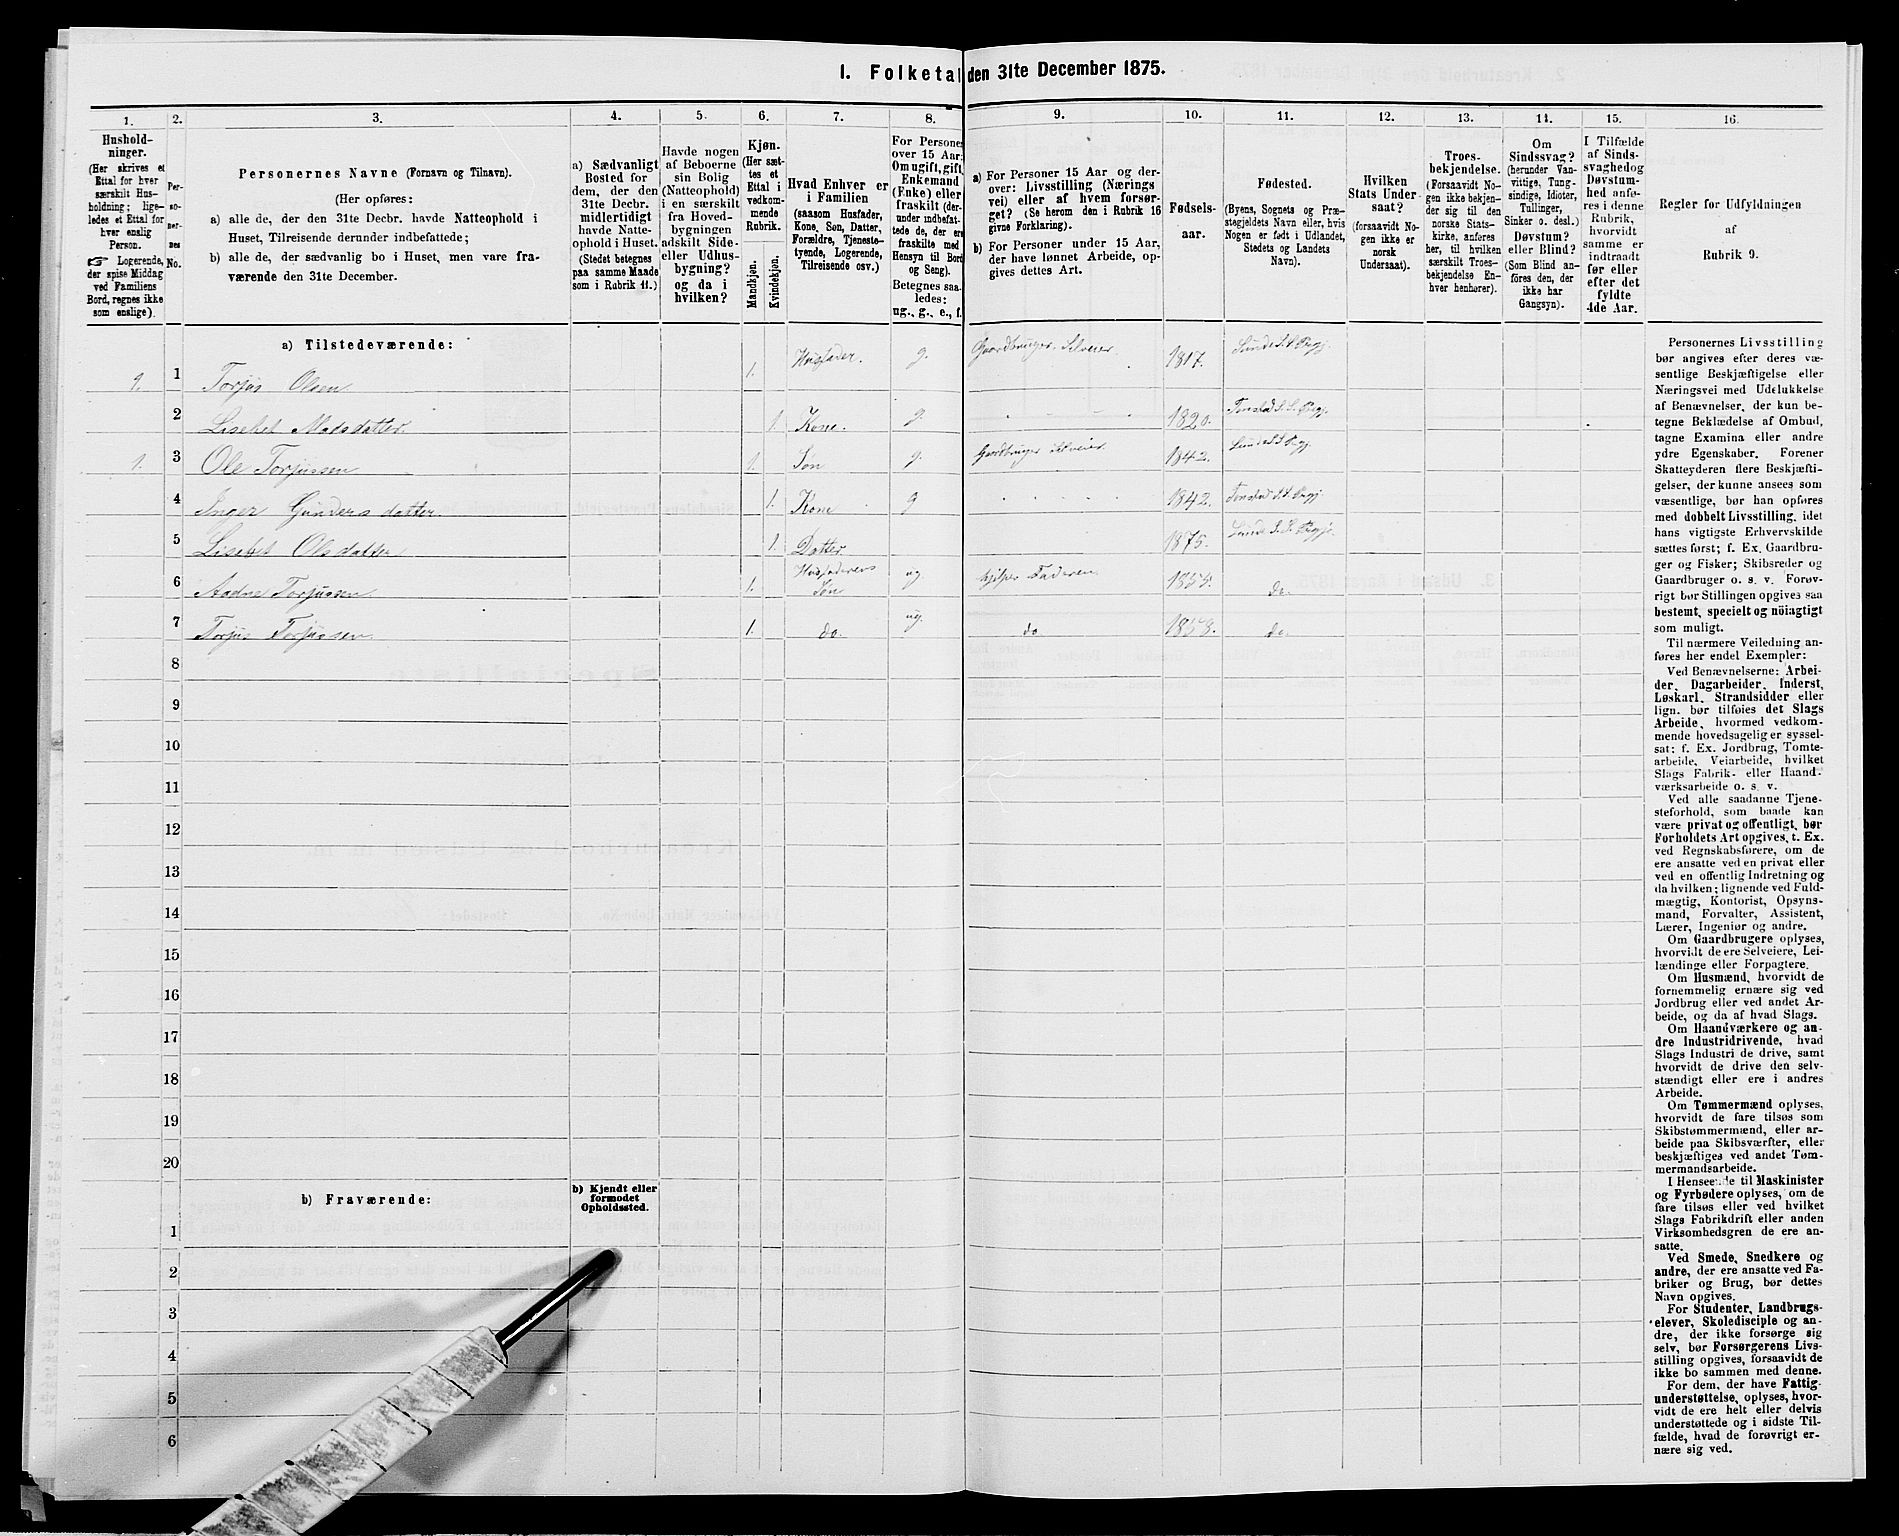 1. Folketal den 31te December 1875.
1.
Hushold-
ninger.
(Her skrives et
Ettal for hver
særskilt Hus-
holdning; lige-
ledes et Ettal for
hver enslig
Person.
☞ Logerende,
der spise Middag
ved Familiens
Bord, regnes ikke
som enslige).
2.
Per-
so-
ner-
nes
No.
3.
Personernes Navne (Fornavn og Tilnavn).
(Her opføres:
a) alle de, der den 31te Decbr. havde Natteophold i
Huset, Tilreisende derunder indbefattede;
b) alle de, der sædvanlig bo i Huset, men vare fra-
værende den 31te December.
4.
a) Sædvanligt
Bosted for
dem, der den
31te Decbr.
midlertidigt
havde Natte-
ophold i Huset.
(Stedet betegnes
paa samme Maade
som i Rubrik 11.)
5.
Havde nogen
af Beboerne
sin Bolig
(Natteophold)
i en særskilt
fra Hoved-
bygningen
adskilt Side-
eller Udhus-
bygning?
og da i
hvilken?
6.
Kjøn.
(Her sæt-
tes et
Ettal i
vedkom-
mende
Rubrik.
Mandkjøn.
Kvindekjøn.
7.
Hvad Enhver er
i Familien
(saasom Husfader,
Kone, Søn, Datter,
Forældre, Tjeneste-
tyende, Logerende,
Tilreisende osv.)
8.
For Persone
over 15 Aar:
Om ugift, gift,
Enkemand
(Enke) eller
fraskilt (der-
under indbefat-
tede de, der ere
fraskilte med
Hensyn til Bord
og Seng).
Betegnes saa-
ledes:
ug., g., e., f.
9.
a) For Personer 15 Aar og der-
over: Livsstilling (Nærings
vei) eller af hvem forsør-
get? (Se herom den i Rubrik 16
givne Forklaring).
b) For Personer under 15 Aar,
der have lønnet Arbeide, op-
gives dettes Art.
10.
Fødsels-
aar.
11.
Fødested.
(Byens, Sognets og Præ-
stegjeldets Navn eller, hvis
Nogen er født i Udlandet,
Stedets og Landets
Navn).
12.
Hvilken
Stats Under-
saat?
(forsaavidt No-
gen ikke er
norsk
Undersaat).
13.
Troes-
bekjendelse.
(Forsaavidt No-
gen ikke bekjen-
der sig til den
norske Stats-
kirke, anføres
her, til hvilken
særskilt Troes-
bekjendelse En-
hver henhører).
14.
Om
Sindssvag?
(herunder Van-
vittige, Tung-
sindige, Idioter,
Tullinger,
Sinker o. desl.)
Døvstum?
eller Blind?
(Som Blind an-
føres den, der
ikke har
Gangsyn).
15.
I Tilfælde
af Sinds-
svaghed og
Døvstum-
hed anfø-
res i denne
Rubrik,
hvorvidt
samme er
indtraadt
før eller
efter det
fyldte
4de Aar.
16.
Regler for Udfyldningen
af
Rubrik 9.
a) Tilstedeværende:
1 Torjus Olsen 1. Husfader. g. Gaardbruger Selveier. 1817. Sunde S. S. Prgj.
2 Lisebet Madsdatter 1. Kone. g. 1820. Tonstad S. S. Prgj.
1. 3 Ole Torjussen 1. Søn g. Gardbruger Selveier 1842. Sunde S. S. Prgj.
4 Inger Gundersdatter 1. Kone g 1842. Tonstad S. S. Prgj.
5 Lisebet Olsdatter 1. Datter. 1875. Sunde S. S. Prgj.
6 Aadne Torjussen 1. Husfaderens Søn ug. hjelper Faderen do.
7 Torjus Torjussen 1. do. ug. do 1858. do.
8
9
10
11
12
13
14
15
16
17
18
19
20
b) Fraværende:
b) Kjendt eller
formodet
Opholdssted.
1
2
3
4
5
6
Personernes Livsstilling
bør angives efter deres væ-
sentlige Beskjæftigelse eller
Næringsvei med Udelukkelse
af Benævnelser, der kun be-
tegne Beklædelse af Ombud,
tagne Examina eller andre
ydre Egenskaber. Forener
Skatteyderen flere Beskjæfti-
gelser, der kunne ansees som
væsentlige, bør han opføres
med dobbelt Livsstilling, idet
hans vigtigste Erhvervskilde
sættes først; f. Ex. Gaardbru-
ger og Fisker; Skibsreder og
Gaardbruger o. s. v. Forøv-
rigt bør Stillingen opgives saa
bestemt, specielt og nöiagtigt
som muligt.
Til nærmere Veiledning an-
føres her endel Exempler:
Ved Benævnelserne: Arbei-
der, Dagarbeider, Inderst,
Løskarl, Strandsidder eller
lign. bør tilføies det Slags
Arbeide, hvormed vedkom-
mende hovedsagelig er syssel-
sat; f. Ex. Jordbrug, Tomte-
arbeide, Veiarbeide, hvilket
Slags Fabrik- eller Haand-
værksarbeide o. s. v.
Ved alle saadanne Tjene-
steforhold, som baade kan
være privat og offentligt, bør
Forholdets Art opgives, t. Ex.
ved Regnskabsførere, om de
ere ansatte ved en privat eller
ved en offentlig Indretning og
da hvilken; lignende ved Fuld-
mægtig, Kontorist, Opsyns-
mand, Forvalter, Assistent,
Lærer, Ingeniør og andre.
Om Gaardbrugere oplyses,
hvorvidt de ere Selveiere, Lei-
lændinge eller Forpagtere.
Om Husmænd, hvorvidt de
fornemmelig ernære sig ved
Jordbrug eller ved andet Ar-
beide, og da af hvad Slags.
Om Haandværkere og an-
dre Industridrivende, hvad
Slags Industri de drive, samt
hvorvidt de drive den selv-
stændigt eller ere i andres
Arbeide.
Om Tømmermænd oplyses,
hvorvidt de fare tilsøs som
Skibstømmermænd, eller ar-
beide paa Skibsværfter, eller
beskjæftiges ved andet Tøm-
mermandsarbeide.
I Henseende til Maskinister
og Fyrbødere oplyses, om de
fare tilsøs eller ved hvilket
Slags Fabrikdrift eller anden
Virksomhedsgren de ere an-
satte.
Ved Smede, Snedkere og
andre, der ere ansatte ved Fa-
briker og Brug, bør dettes
Navn opgives.
For Studenter, Landbrugs-
elever, Skoledisciple og an-
dre, der ikke forsørge sig
selv, bør Forsørgerens Livs-
stilling opgives, forsaavidt de
ikke bo sammen med denne.
For dem, der have Fattig-
understøttelse, oplyses, hvor-
vidt de ere helt eller delvis
understøttede og i sidste Til-
fælde, hvad de forøvrigt er-
nære sig ved.